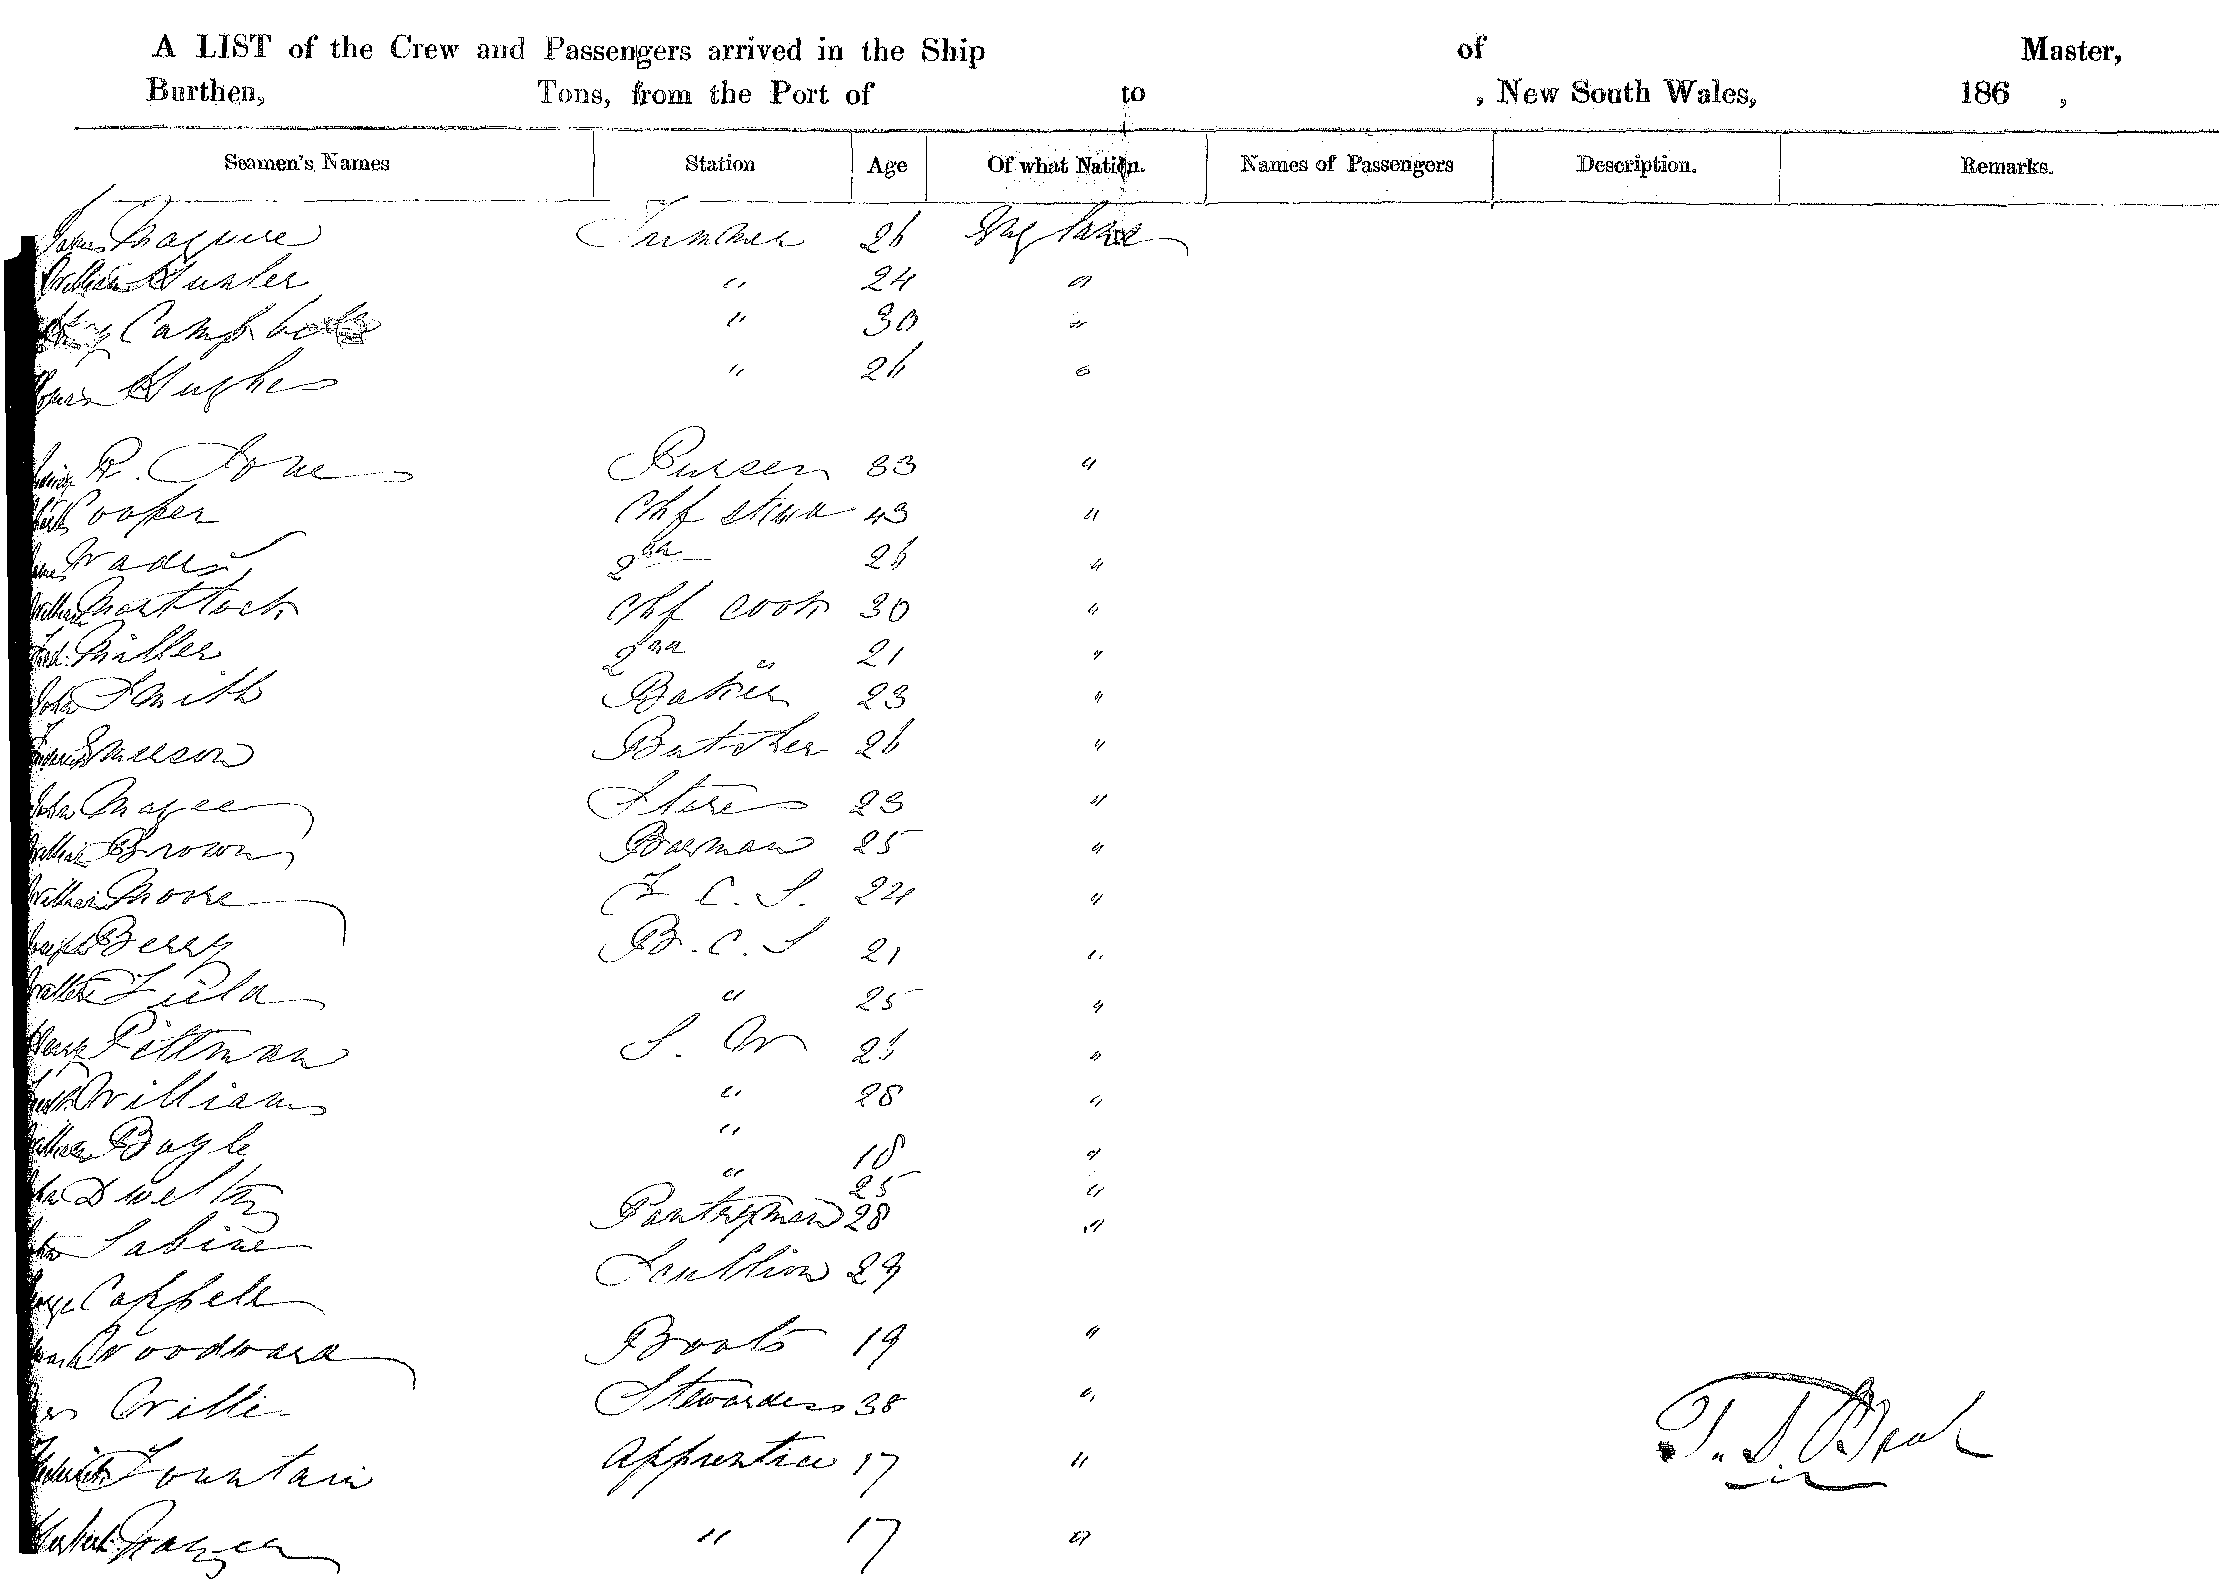 A LIST of the Crew and Passengers arrived in the Ship of Master,
Burthen, Tons, from the Port of to , New South Wales, 186 ,
Seamen's Names Station Age Of what Nation. Names of Passengers Description. Remarks.
James Maguire Trimmer 26 England
William Hunter " 24 "
Campbell " 30 "
Hughes " 26 "
R. Jones Purser 33 "
Cooper Chf stewd 43 "
James Wades 2nd 26 "
William Mattock Chf cook 30 "
Fred. Miller 2nd " 21 "
John Smith Baker 23 "
Emerson Butcher 26 "
John Magee Stores 23 "
William Brown Barman 25 "
William Moore F C. S. 24 "
Joseph Berry B. C. S 21 "
Walter Field " 25 "
Henry Pittman S. W "
Williams " 28 "
William Boyle " 18 "
John Dwelty " 25 "
Sabine Pantryman 28 "
George Cappell Scullion 29
Woodward Boots 19 "
Mrs Willi Stewardess 38 "
Frederick Fountain Apprentice 17 "
Herbert Frazer " 17 "